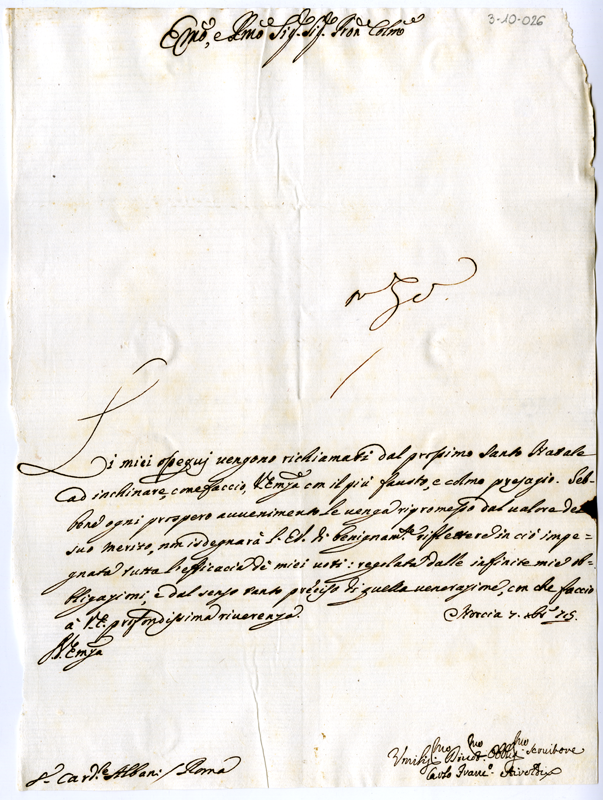 3-10-026
Emo, e Rmo Sig.r Sig.r Pron Colmo
Li miei ossequj vengono richiamati dal prossimo Santo Natale
ad inchinare, come faccio, V. Emza con il più fausto, e colmo presagio. Seb-
bene ogni prospero avvenimento le venga ripromesso dal valore del
suo merito, non isdegnarà l'E.V. di benignam.te riflettere in ciò impe-
gnata tutta l'efficacia de miei voti: regolata dalle infinite mie ob-
bligazioni, e dal senso tanto preciso di quella venerazione, con che faccio
à V.E. profondissima riverenza. Norcia 7. Xbre 715.
V. Emza
Umiliss.mo Divot.mo Obbl.mo Servitore
Carlo
S.r Card.le Albani / Roma